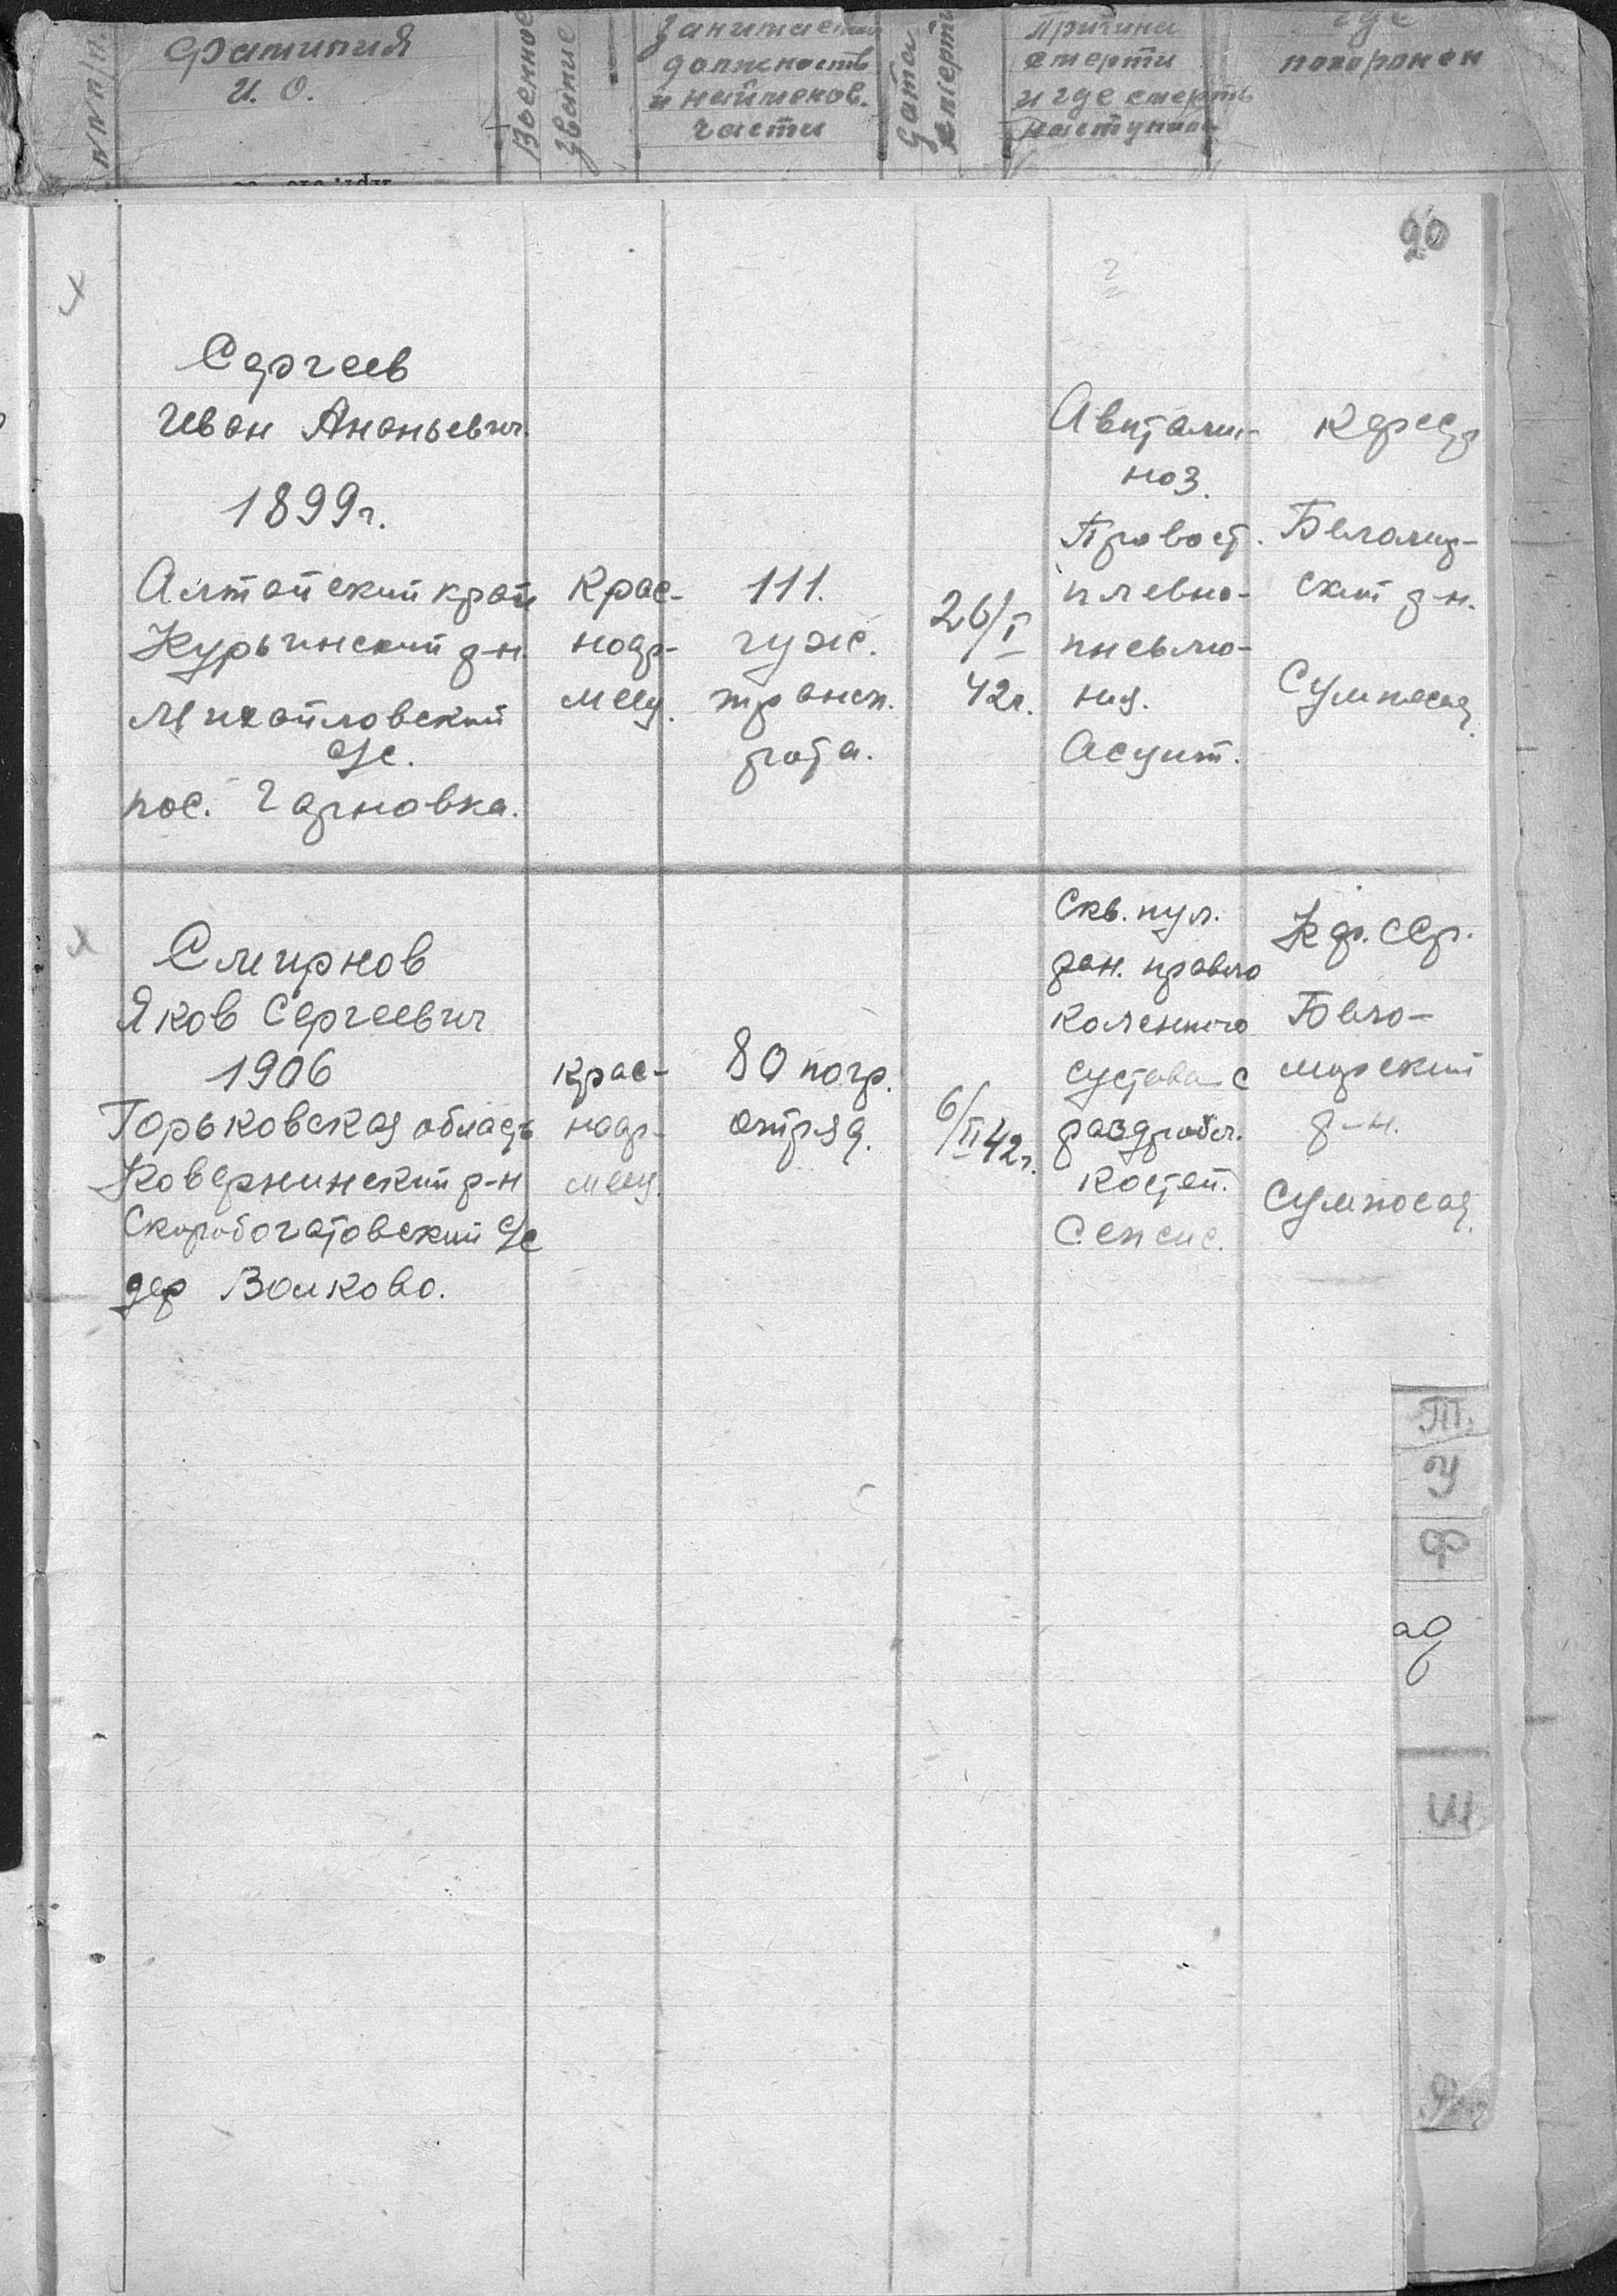 №№ п/п.
Фамилия
И. О.
Военное
звание
Занимаемая
должность
и наименов.
части
Дата
смерти
Причина
смерти
и где смерть
наступила
где
похоронен
90
Сергеев
Иван Ананьевич.
1899г.
Алтайский край
Курьинский р-н.
Михайловский
с/с.
пос. Чарновка.
Крас-
ноар-
меец.
111.
гуж.
трансп.
рота.
26/I
42г.
Авитами-
ноз.
Правост.
плевно-
пневмо-
ния.
Асцит.
КФССР
Беломор-
ский р-н.
Сумпосад.
Смирнов
Яков Сергеевич
1906
Горьковская область
Ковернинский р-н
Скоробогатовский с/с
дер Волково.
Крас-
ноар-
меец.
80 погр.
отряд.
6/II 42г.
Скв. пул.
ран. правого
коленного
сустава с
раздробл.
костей.
Сепсис.
К.Ф.ССР.
Бело-
морский
р-н.
Сумпосад.
Т.
У
Ф
Ш